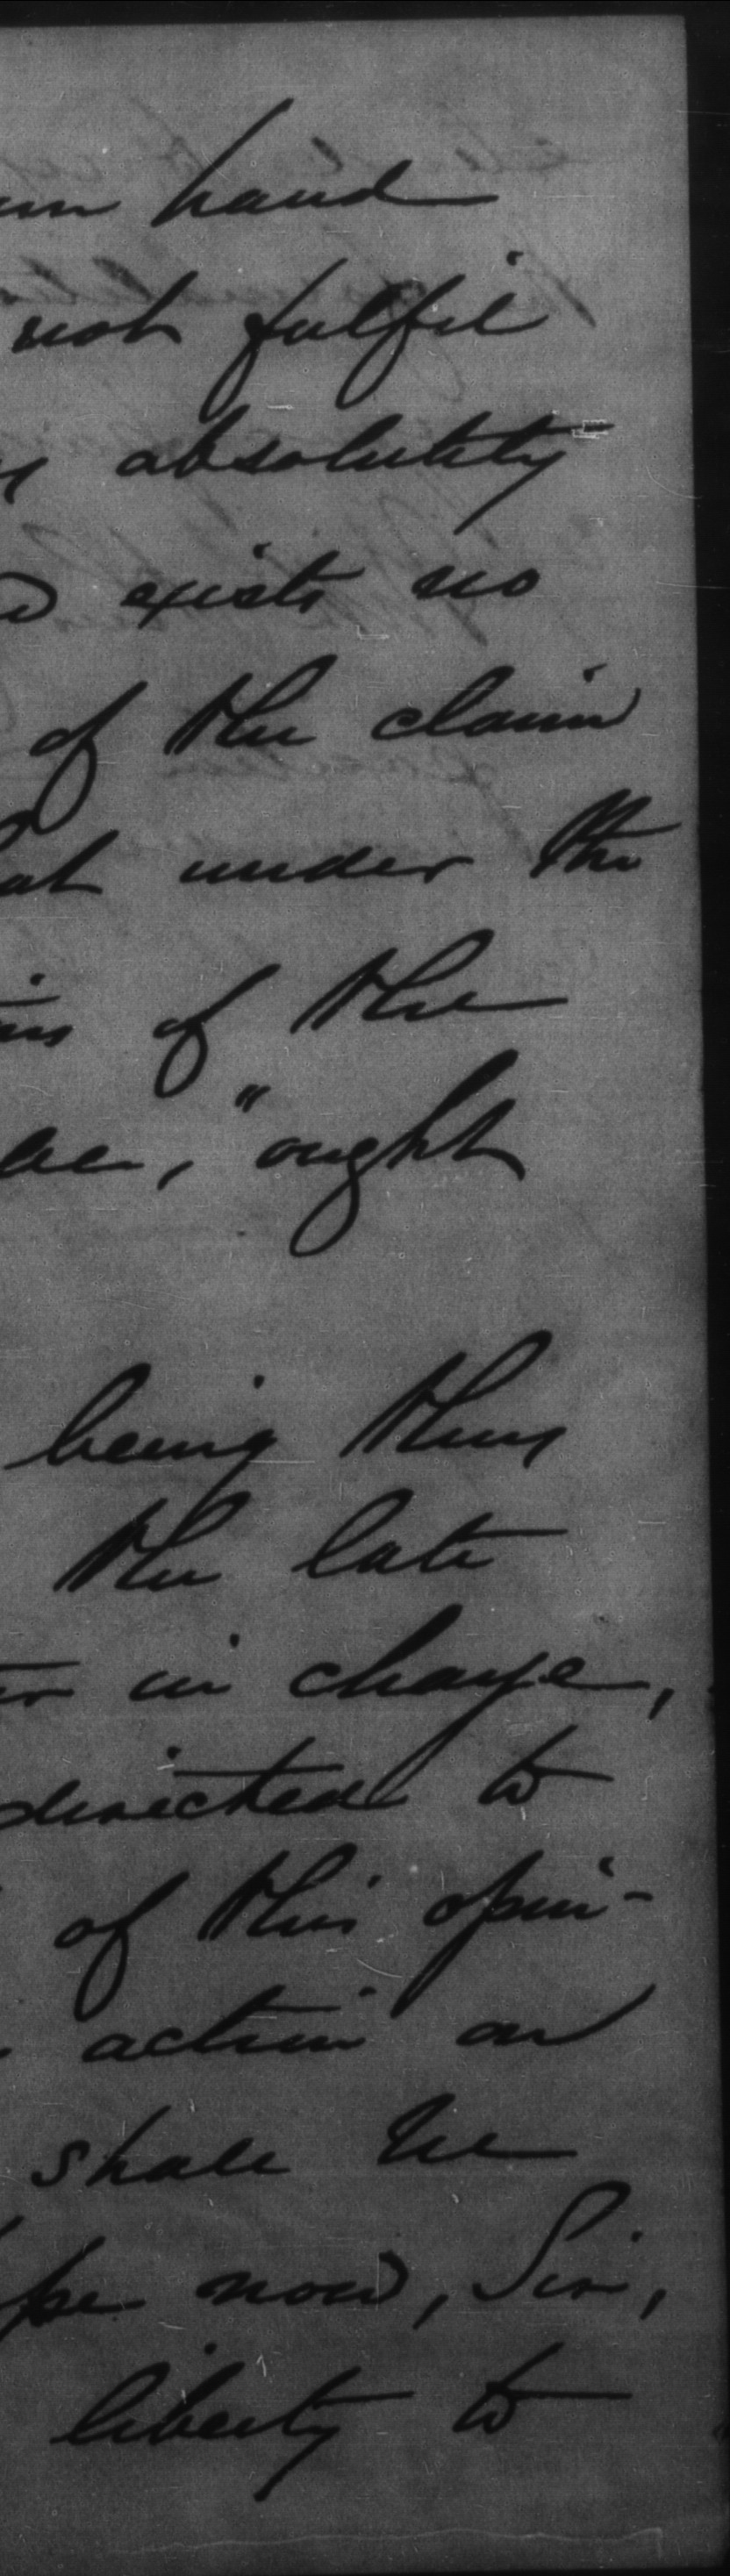 hand
not fulfil
absolutely
exists no
of the claim
under the
of the
"ought
being thus
the late
in charge,
directed to
of this opin-
action on
shall be
now, Sir,
liberty to